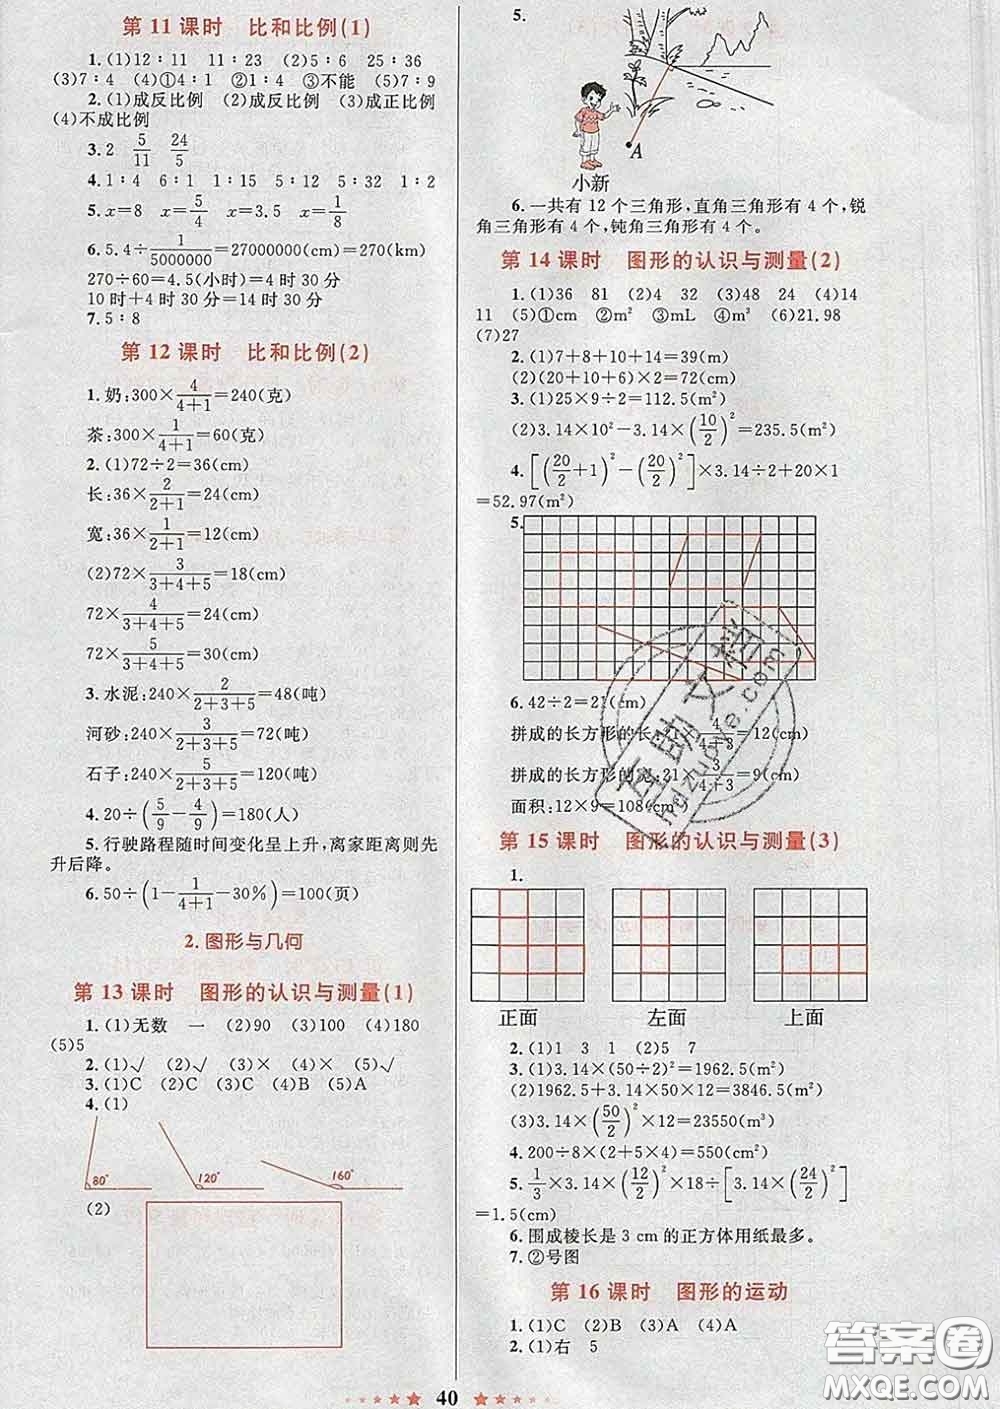 第 11 课时　比和比例(1)
1.(1)12∶11　11∶23　(2)5∶6　25∶36
(3)7∶4　(4)①4∶1　②1∶4　③不能　(5)7∶9
2.(1)成反比例　(2)成反比例　(3)成正比例
(4)不成比例
3.2　5/11　24/5
4.1∶4　6∶1　1∶15　5∶12　5∶32　1∶2
5.x=8　x=5/4　x=3.5　x=1/8
6.5.4÷1/5000000=27000000(cm)=270(km)
270÷60=4.5(小时)=4时30分
10时+4时30分=14时30分
7.5∶8
第 12 课时　比和比例(2)
1.奶:300×4/(4+1)=240(克)
茶:300×1/(4+1)=60(克)
2.(1)72÷2=36(cm)
长:36×2/(2+1)=24(cm)
宽:36×1/(2+1)=12(cm)
(2)72×3/(3+4+5)=18(cm)
72×4/(3+4+5)=24(cm)
72×5/(3+4+5)=30(cm)
3.水泥:240×2/(2+3+5)=48(吨)
河砂:240×3/(2+3+5)=72(吨)
石子:240×5/(2+3+5)=120(吨)
4.20÷(5/9-4/9)=180(人)
5.行驶路程随时间变化呈上升,离家距离则先
升后降。
6.50÷(1-1/(4+1)-30%)=100(页)
2.图形与几何
第 13 课时　图形的认识与测量(1)
1.(1)无数　一　(2)90　(3)100　(4)180
(5)5
2.(1)√　(2)√　(3)×　(4)×　(5)√
3.(1)C　(2)C　(3)C　(4)B　(5)A
4.(1)
80°　120°　160°
(2)
5.
A
小新
6.一共有12个三角形,直角三角形有4个,锐
角三角形有4个,钝角三角形有4个。
第 14 课时　图形的认识与测量(2)
1.(1)36　81　(2)4　32　(3)48　24　(4)14
11　(5)①cm　②m²　③mL　④m²　(6)21.98
(7)27
2.(1)7+8+10+14=39(m)
(2)(20+10+6)×2=72(cm)
3.(1)25×9÷2=112.5(m)
(2)3.14×10²-3.14×(10/2)²=235.5(m²)
4.[(20/2+1)²-(20/2)²]×3.14÷2+20×1
=52.97(m²)
5.
6.42÷2=21(cm)
拼成的长方形的长:21×4/(4+3)=12(cm)
拼成的长方形的宽:21×3/(4+3)=9(cm)
面积:12×9=108(cm²)
第 15 课时　图形的认识与测量(3)
1.
正面　左面　上面
2.(1)1　3　1　(2)5　7
3.(1)3.14×(50÷2)²=1962.5(m²)
(2)1962.5+3.14×50×12=3846.5(m²)
(3)3.14×(50/2)²×12=23550(m³)
4.200÷8×(2+5×4)=550(cm²)
5.1/3×3.14×(12/2)²×18÷[3.14×(24/2)²]
=1.5(cm)
6.围成棱长是3 cm的正方体用纸最多。
7.②号图
第 16 课时　图形的运动
1.(1)C　(2)B　(3)A　(4)A
2.(1)右　5
40
答案圈
MXQE.COM